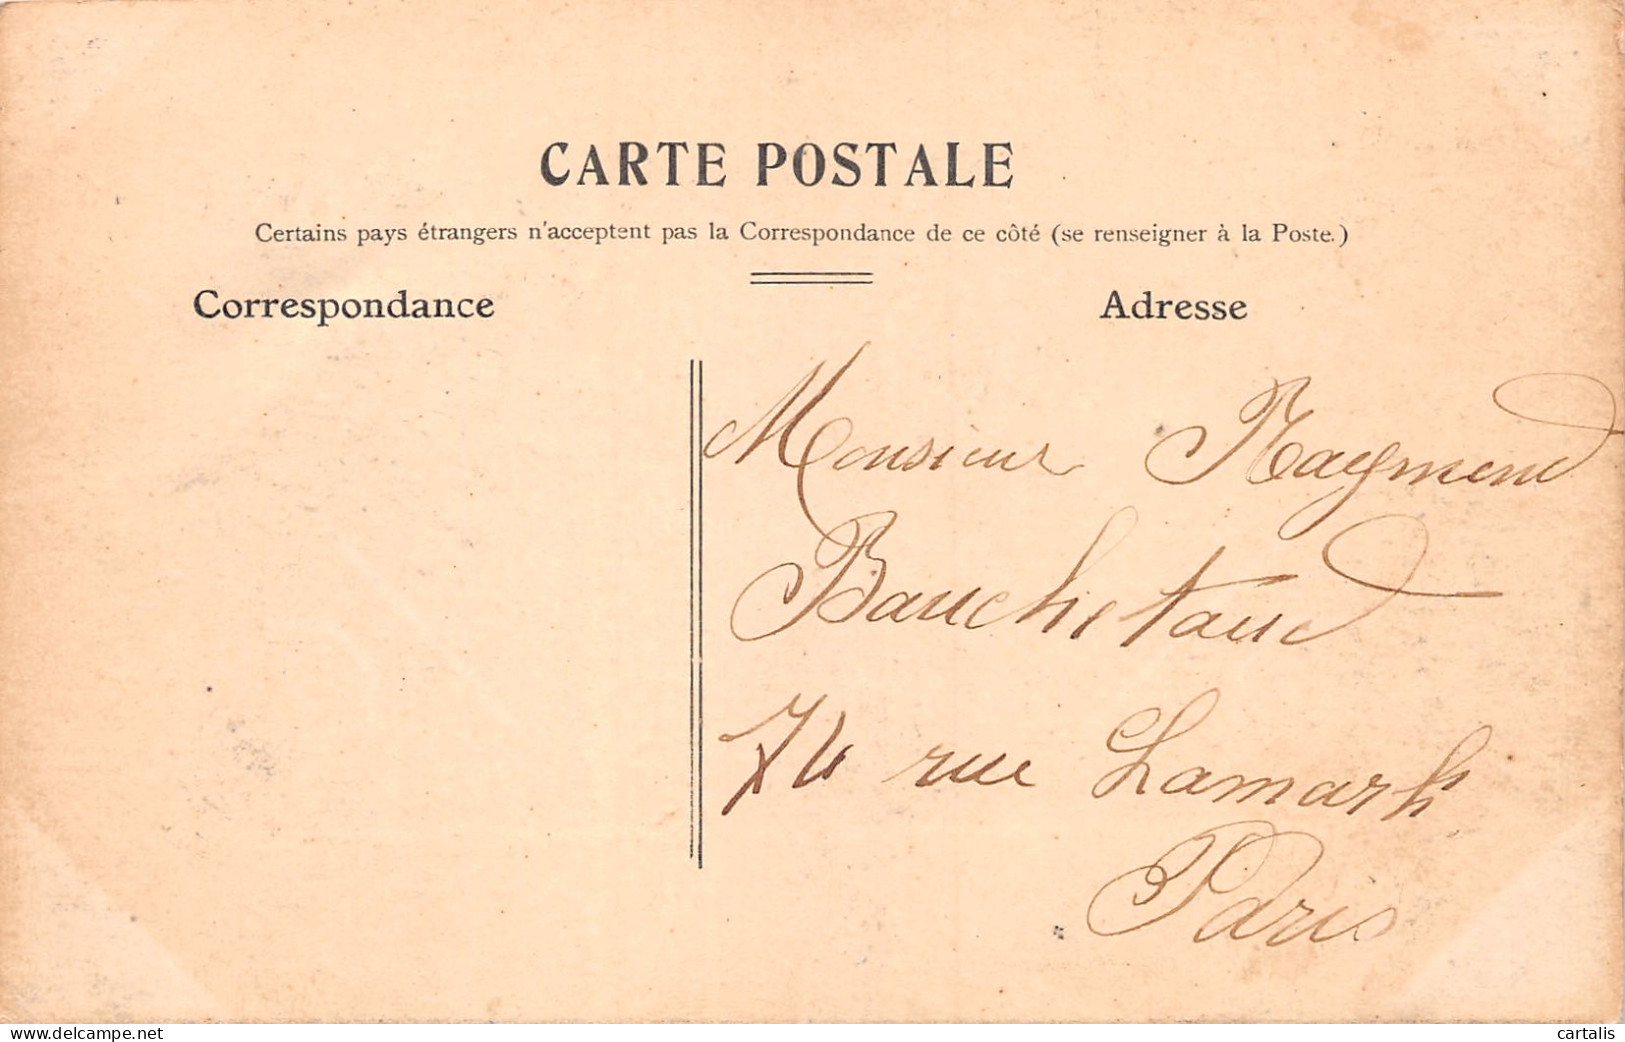 CARTE POSTALE
Certains pays étrangers n'acceptent pas la Correspondance de ce côté (se renseigner à la Poste.)
Correspondance
Adresse
Monsieur Raymond
Bauchetaud
74 rue Lamark
Paris
www.delcampe.net
cartalis